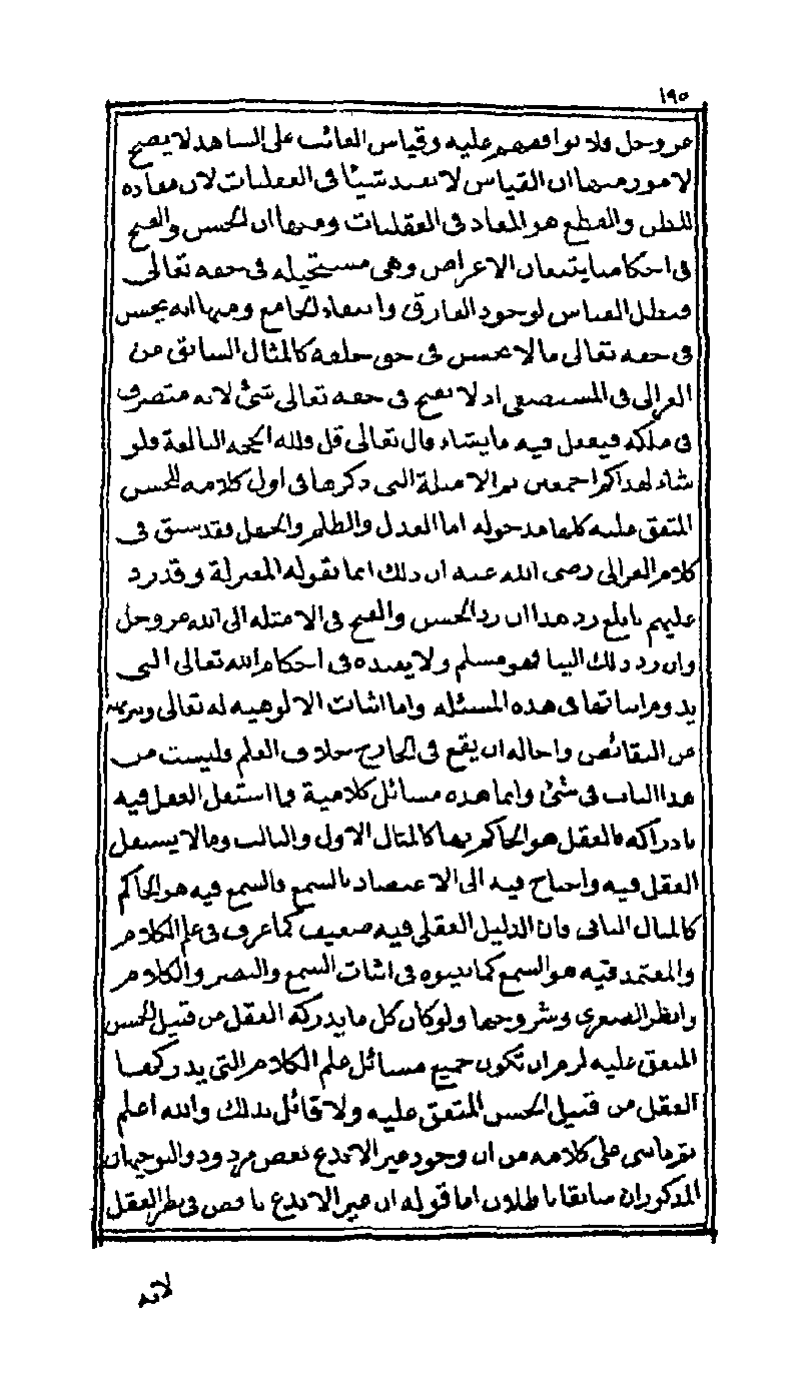 ١٩٥
عز وجل فلا نوافقهم عليه وقياس الغائب على الشاهد لا يصح
لامور منها ان القياس لا يفيد شيئا في العقليات لان مفاده
الظن والقطع هو المفاد في العقليات ومنها ان الحسن والقبح
في احكامنا يتبعان الاعراض وهي مستحيله في حقه تعالى
فبطل القياس لوجود الفارق وانتفاء الجامع ومنها انه يحسن
في حقه تعالى ما لا يحسن في حق خلقه كالمثال السابق عن
الغزالي في المستصفى اذ لا يقبح في حقه تعالى شئ لانه متصرف
في ملكه فيفعل فيه ما يشاء قال تعالى قل فلله الحجه البالغة فلو
شاء لهداكم اجمعين ثم الامثلة التي ذكرها في اول كلامه للحسن
المتفق عليه كلها مدخوله اما العدل والظلم والجهل فقد سبق في
كلام الغزالي رضي الله عنه ان ذلك انما تقوله المعتزلة وقد رد
عليهم بابلغ رد هذا ان رد الحسن والقبح في الامثله الى الله عز وجل
وان رد ذلك الينا فهو مسلم ولا يفيده في احكام الله تعالى التي
يدوم اثباتها في هذه المسئله واما اثبات الالوهيه له تعالى وتنزيهه
عن النقائص واحاله ان يقع في الخارج خلاف العلم فليست من
هذا الباب في شئ وانما هذه مسائل كلامية فما استقل العقل فيه
بادراكه فالعقل هو الحاكم بها كالمثال الاول والثالث وما لا يستقل
العقل فيه واحتاج فيه الى الاعتضاد بالسمع فالسمع فيه هو الحاكم
كالمثال الثاني فان الدليل العقلي فيه ضعيف كما عرف في علم الكلام
والمعتمد فيه هو السمع كما بينوه في اثبات السمع والبصر والكلام
وانظر الصغرى وشروحها ولو كان كل ما يدركه العقل من قبيل الحسن
المتفق عليه لزم ان تكون جميع مسائل علم الكلام التي يدركها
العقل من قبيل الحسن المتفق عليه ولا قائل بذلك والله اعلم
ثم ما بنى على كلامه من ان وجود غير الابدع نقص مردود والتوجيهان
المذكوران سابقا باطلان اما قوله ان غير الابدع ناقص في نظر العقل
لانه